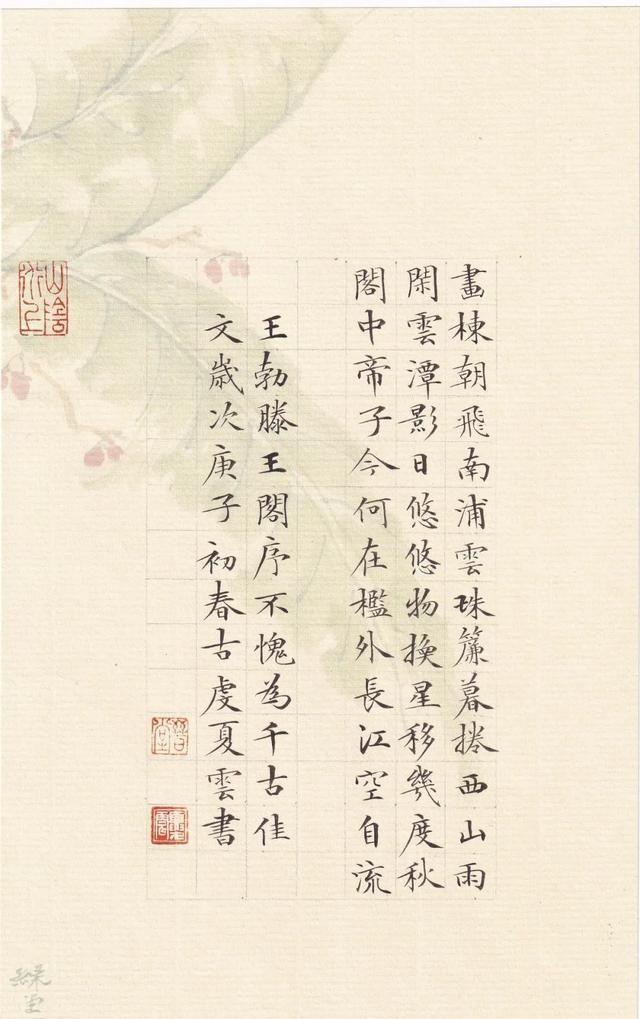 畫棟朝飛南浦雲珠簾暮捲西山雨
閑雲潭影日悠悠物換星移幾度秋
閣中帝子今何在檻外長江空自流
王勃滕王閣序不愧為千古佳
文歲次庚子初春古虔夏雲書
山陰